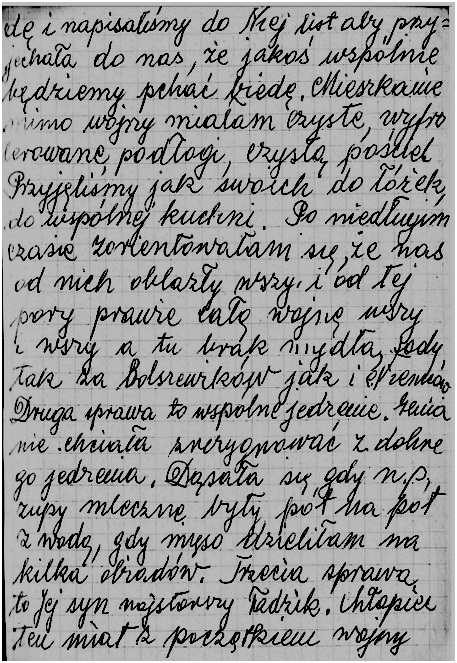 dę i napisaliśmy do Niej list aby przy=
jechała do nas, że jakoś wspólnie
będziemy pchać biedę. Mieszkanie
mimo wojny miałam czyste, wyfro
terowane podłogi, czystą pościel
Przyjęliśmy jak swoich do łóżek,
do wspólnej kuchni. Po niedługim
czasie zorientowałam się, że nas
od nich oblazły wszy. i od tej
pory prawie całą wojnę wszy
i wszy a tu brak mydła, sody
tak za Bolszewików jak i Niemców
Druga sprawa to wspólne jedzenie. Genia
nie chciała zrezygnować z dobre
go jedzenia. Dąsała się gdy n.p.
zupy mleczne były pół na pół
z wodą, gdy mięso dzieliłam na
kilka obiadów. Trzecia sprawa
to Jej syn najstarszy Tadzik. Chłopiec
ten miał z początkiem wojny